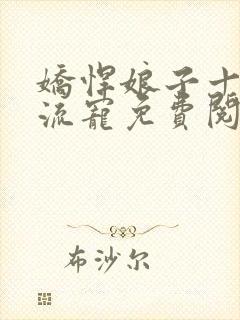 嬌悍娘子十
流寵免費閱
布沙尔